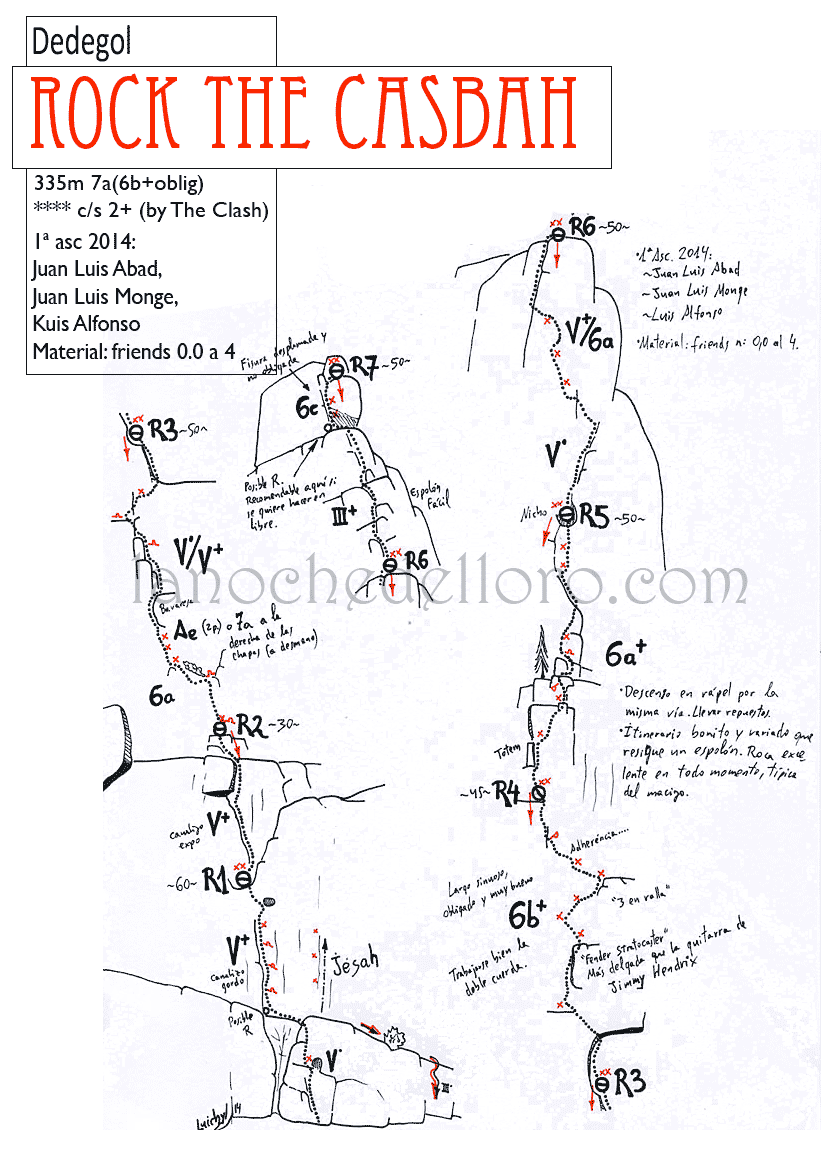 Dedegol
ROCK THE CASBAH
335m 7a(6b+oblig)
**** c/s 2+ (by The Clash)
1ª asc 2014:
Juan Luis Abad,
Juan Luis Monge,
Kuis Alfonso
Material: friends 0.0 a 4
Fisura desplomada y
no obligada
R7 ~50~
6c
Posible R.
Recomendable aquí si
se quiere hacer en
libre.
Espolón
Fácil
III+
R6
R3 ~50~
V·/V+
Bavaresa
Ae (2p.) o 7a a la
derecha de las
chapas (a desmano)
6a
R2 ~30~
V+
canalizo
expo
~60~ R1
V+
canalizo
gordo
Jésah
Posible
R
V·
III
Luichy 14
R6 ~50~
·1ª Asc. 2014:
~Juan Luis Abad
~Juan Luis Monge
~Luis Alfonso
·Material: friends nº 0,0 al 4.
V+/6a
V·
Nicho
R5 ~50~
lanochedelloro.com
6a+
·Descenso en rápel por la
misma vía. Llevar repuestos.
·Itinerario bonito y variado que
resigue un espolón. Roca exce
lente en todo momento, típica
del macizo.
Totem
~45~ R4
Adherencia....
Largo sinuoso,
obligado y muy bueno
6b+
"3 en ralla"
Trabajarse bien la
doble cuerda.
"Fender stratocaster"
Más delgada que la guitarra de
Jimmy Hendrix
R3